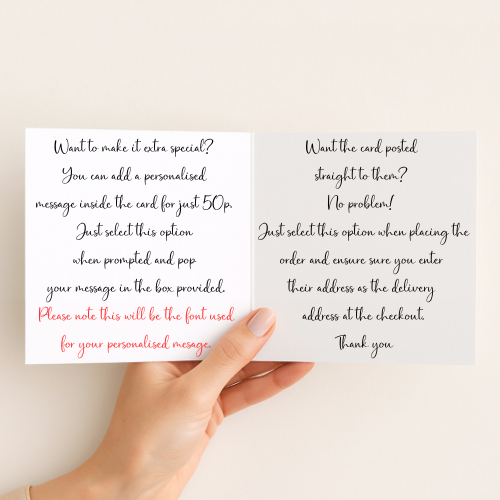 Want to make it extra special?
You can add a personalised
message inside the card for just 50p.
Just select this option
when prompted and pop
your message in the box provided.
Please note this will be the font used
for your personalised mesage.
Want the card posted
straight to them?
No problem!
Just select this option when placing the
order and ensure sure you enter
their address as the delivery
address at the checkout.
Thank you